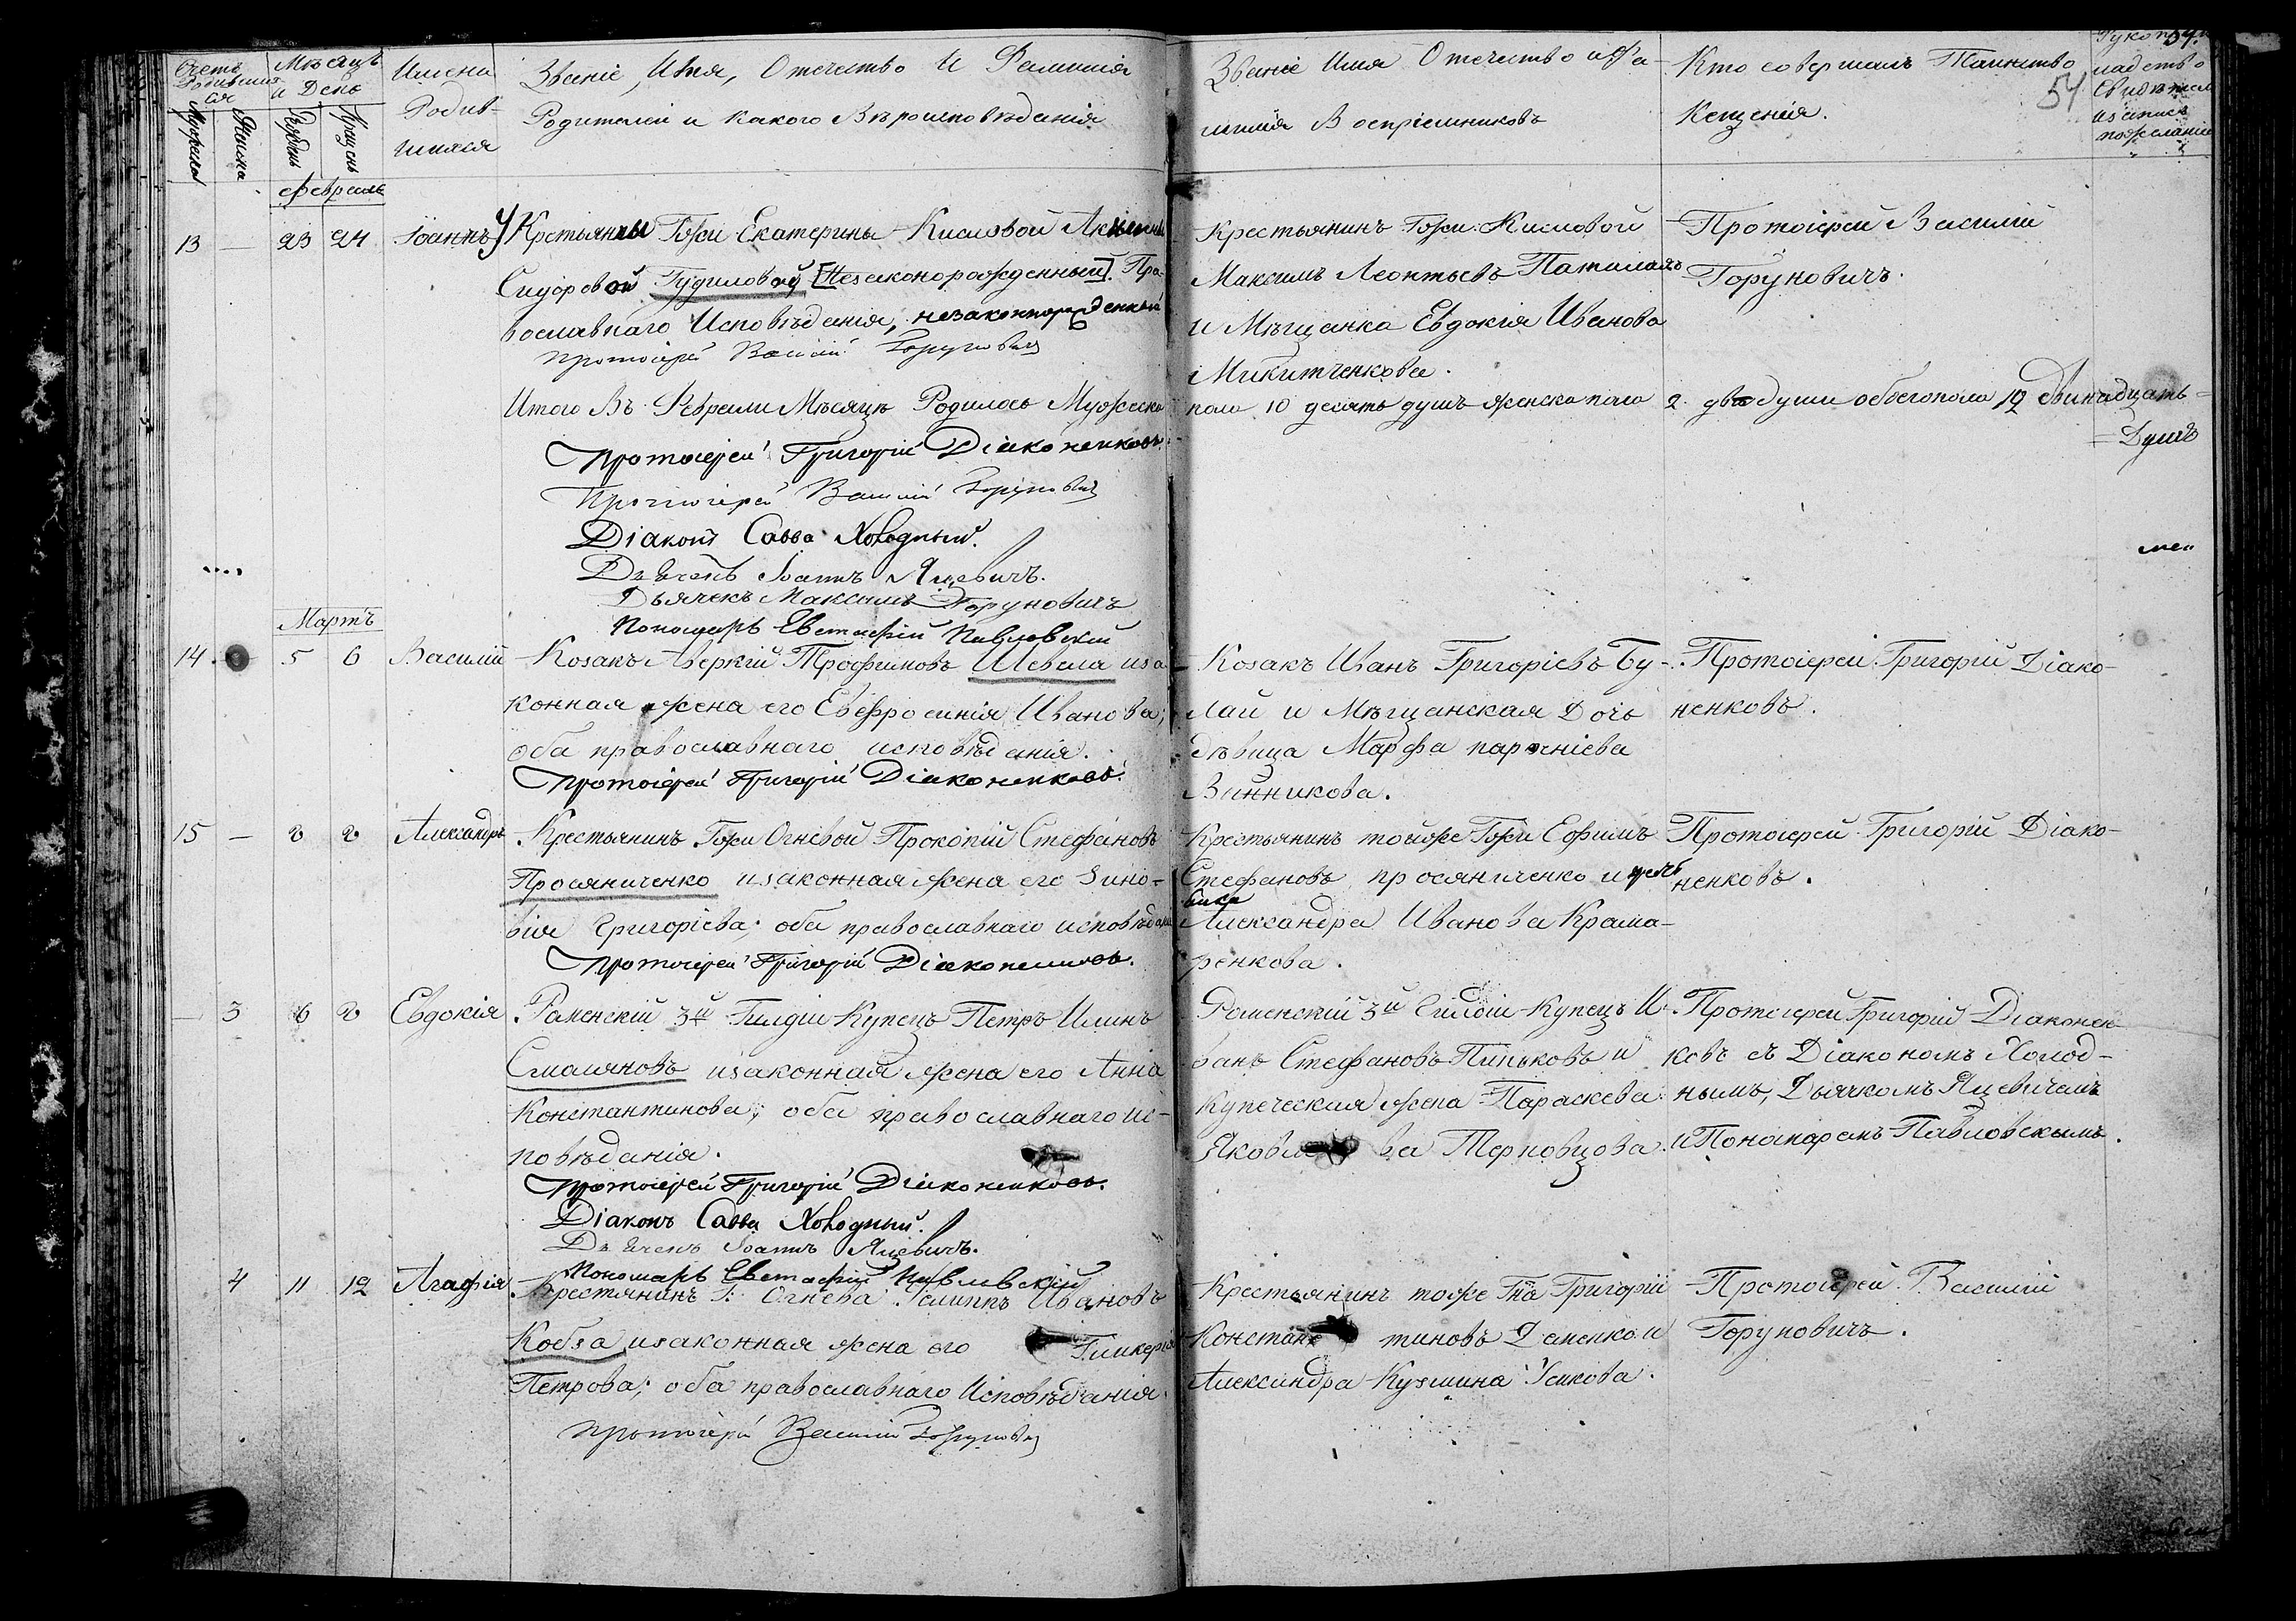 Счетъ Родившихся
Мѣсяцъ и День
Имена Родившихся
Званіе, Имя, Отечество и Фамилія
Родителей и какого Вѣроисповѣданія
Званіе Имя Отечество и Фа-
милія Воспріемниковъ
Кто совершалъ Таинство
Крещенія.
54
Мужеска
Женска
Рожден
Крещен
Февраль
13 — 23 24 Іоаннъ
У Крестьянки Гожи Екатерины Кисловой
Сидоровой Гудиловой [Незаконорожденный]. Пра-
вославнаго Исповѣданія, незаконнорожденный
Протоіерей Василій Горуновичъ
Крестьянинъ Гожи Кисловой
Максимъ Леонтьевъ
и Мѣщанка Евдокія Иванова
Микитченкова.
Протоіерей Василій
Горуновичъ.
Итого Въ Феврали Мѣсяцѣ Родилось Мужеска пола 10 десять душъ женска пола 2 двѣ души обоего пола 12 двѣнадцать
= Душъ
Протоіерей Григорій Діаконенковъ.
Протоіерей Василій Горуновичъ
Діаконъ Савва Холодный.
Дьячекъ Іоаннъ Яцевичъ.
Дьячекъ Максимъ Горуновичъ
Пономарь Евстафій Павловскій
Мартъ
14 — 5 6 Василій
Козакъ Аверкій Трофимовъ Шевела иза
конная жена его Евфросинія Иванова;
оба православнаго исповѣданія.
Протоіерей Григорій Діаконенковъ.
Козакъ Иванъ Григорьевъ Бу-
лай и Мѣщанская Дочь
дѣвица Марфа
Винникова.
Протоіерей Григорій Діако-
ненковъ.
15 — Александръ
Крестьянинъ Гожи Огневой Прокопій Стефановъ
Просяниченко изаконная жена его Зино-
вія Григоріева; оба православнаго исповѣданія
Протоіерей Григорій Діаконенковъ.
Крестьянинъ тойже Гожи Ефимъ
Стефановъ просяниченко и
Александра Иванова Крама-
ренкова.
Протоіерей Григорій Діако-
ненковъ.
— 3 6 Евдокія
Роменскій 3й Гилдіи Купецъ Петръ Илинъ
Смаляновъ изаконная жена его Анна
Константинова; оба православнаго ис-
повѣданія.
Протоіерей Григорій Діаконенковъ.
Діаконъ Савва Холодный.
Дьячекъ Іоаннъ Яцевичъ.
Пономарь Евстафій Павловскій
Роменскій 3й Гилдіи Купецъ И-
ванъ Стефановъ Пиньковъ и
купеческая жена Параскева
Яковлева Терновцова.
Протоіерей Григорій Діаконен-
ковъ съ Діакономъ Холод-
нымъ, Дьячкомъ Яцевичемъ
и Пономаремъ Павловскимъ.
4 11 12 Агафія
Крестянинъ Г: Огнева Филиппъ Ивановъ
Кобза изаконная жена его Гликерія
Петрова; оба православнаго Исповѣданія.
Протоіерей Василій Горуновичъ
Крестьянинъ тоже Гна Григорій
Константиновъ Деменко и
Александра Кузмина Усикова.
Протоіерей Василій
Горуновичъ.